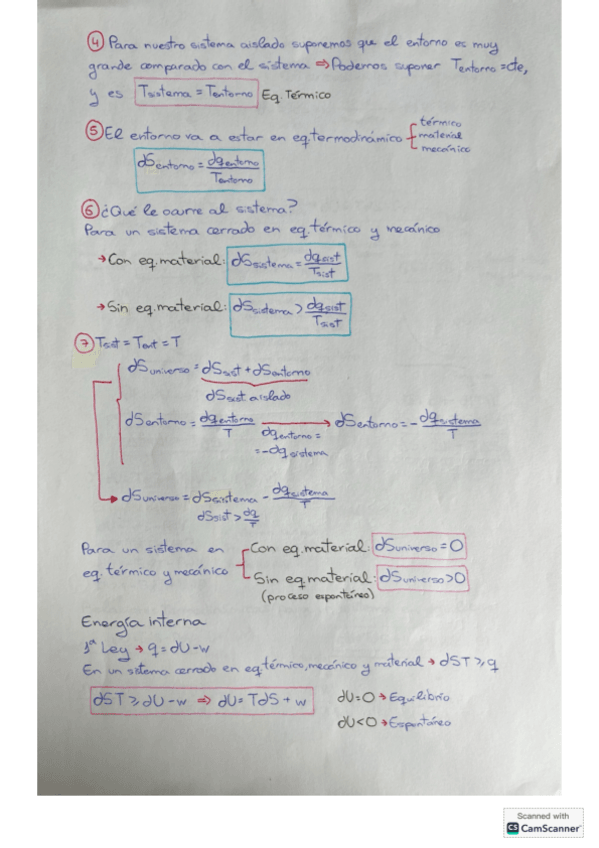 ④ Para nuestro sistema aislado suponemos que el entorno es muy
grande comparado con el sistema ⇒ Podemos suponer Tentorno = cte,
y es Tsistema = Tentorno Eq. Térmico
⑤ El entorno va a estar en eq. termodinámico { térmico
material
mecánico
dSentorno = dqentorno / Tentorno
⑥ ¿Qué le ocurre al sistema?
Para un sistema cerrado en eq. térmico y mecánico
→ Con eq. material: dSsistema = dqsist / Tsist
→ Sin eq. material: dSsistema > dqsist / Tsist
⑦ Tsist = Tent = T
dSuniverso = dSsist + dSentorno
dSsist aislado
dSentorno = dqentorno / T → dSentorno = - dqsistema / T
dqentorno =
= -dqsistema
dSuniverso = dSsistema - dqsistema / T
dSsist > dq / T
Para un sistema en
eq. térmico y mecánico
Con eq. material: dSuniverso = 0
Sin eq. material: dSuniverso > 0
(proceso espontáneo)
Energía interna
1ª Ley → q = dU - w
En un sistema cerrado en eq. térmico, mecánico y material → dST ≥ q
dST ≥ dU - w ⇒ dU = TdS + w
dU = 0 → Equilibrio
dU < 0 → Espontáneo
Scanned with
CS CamScanner